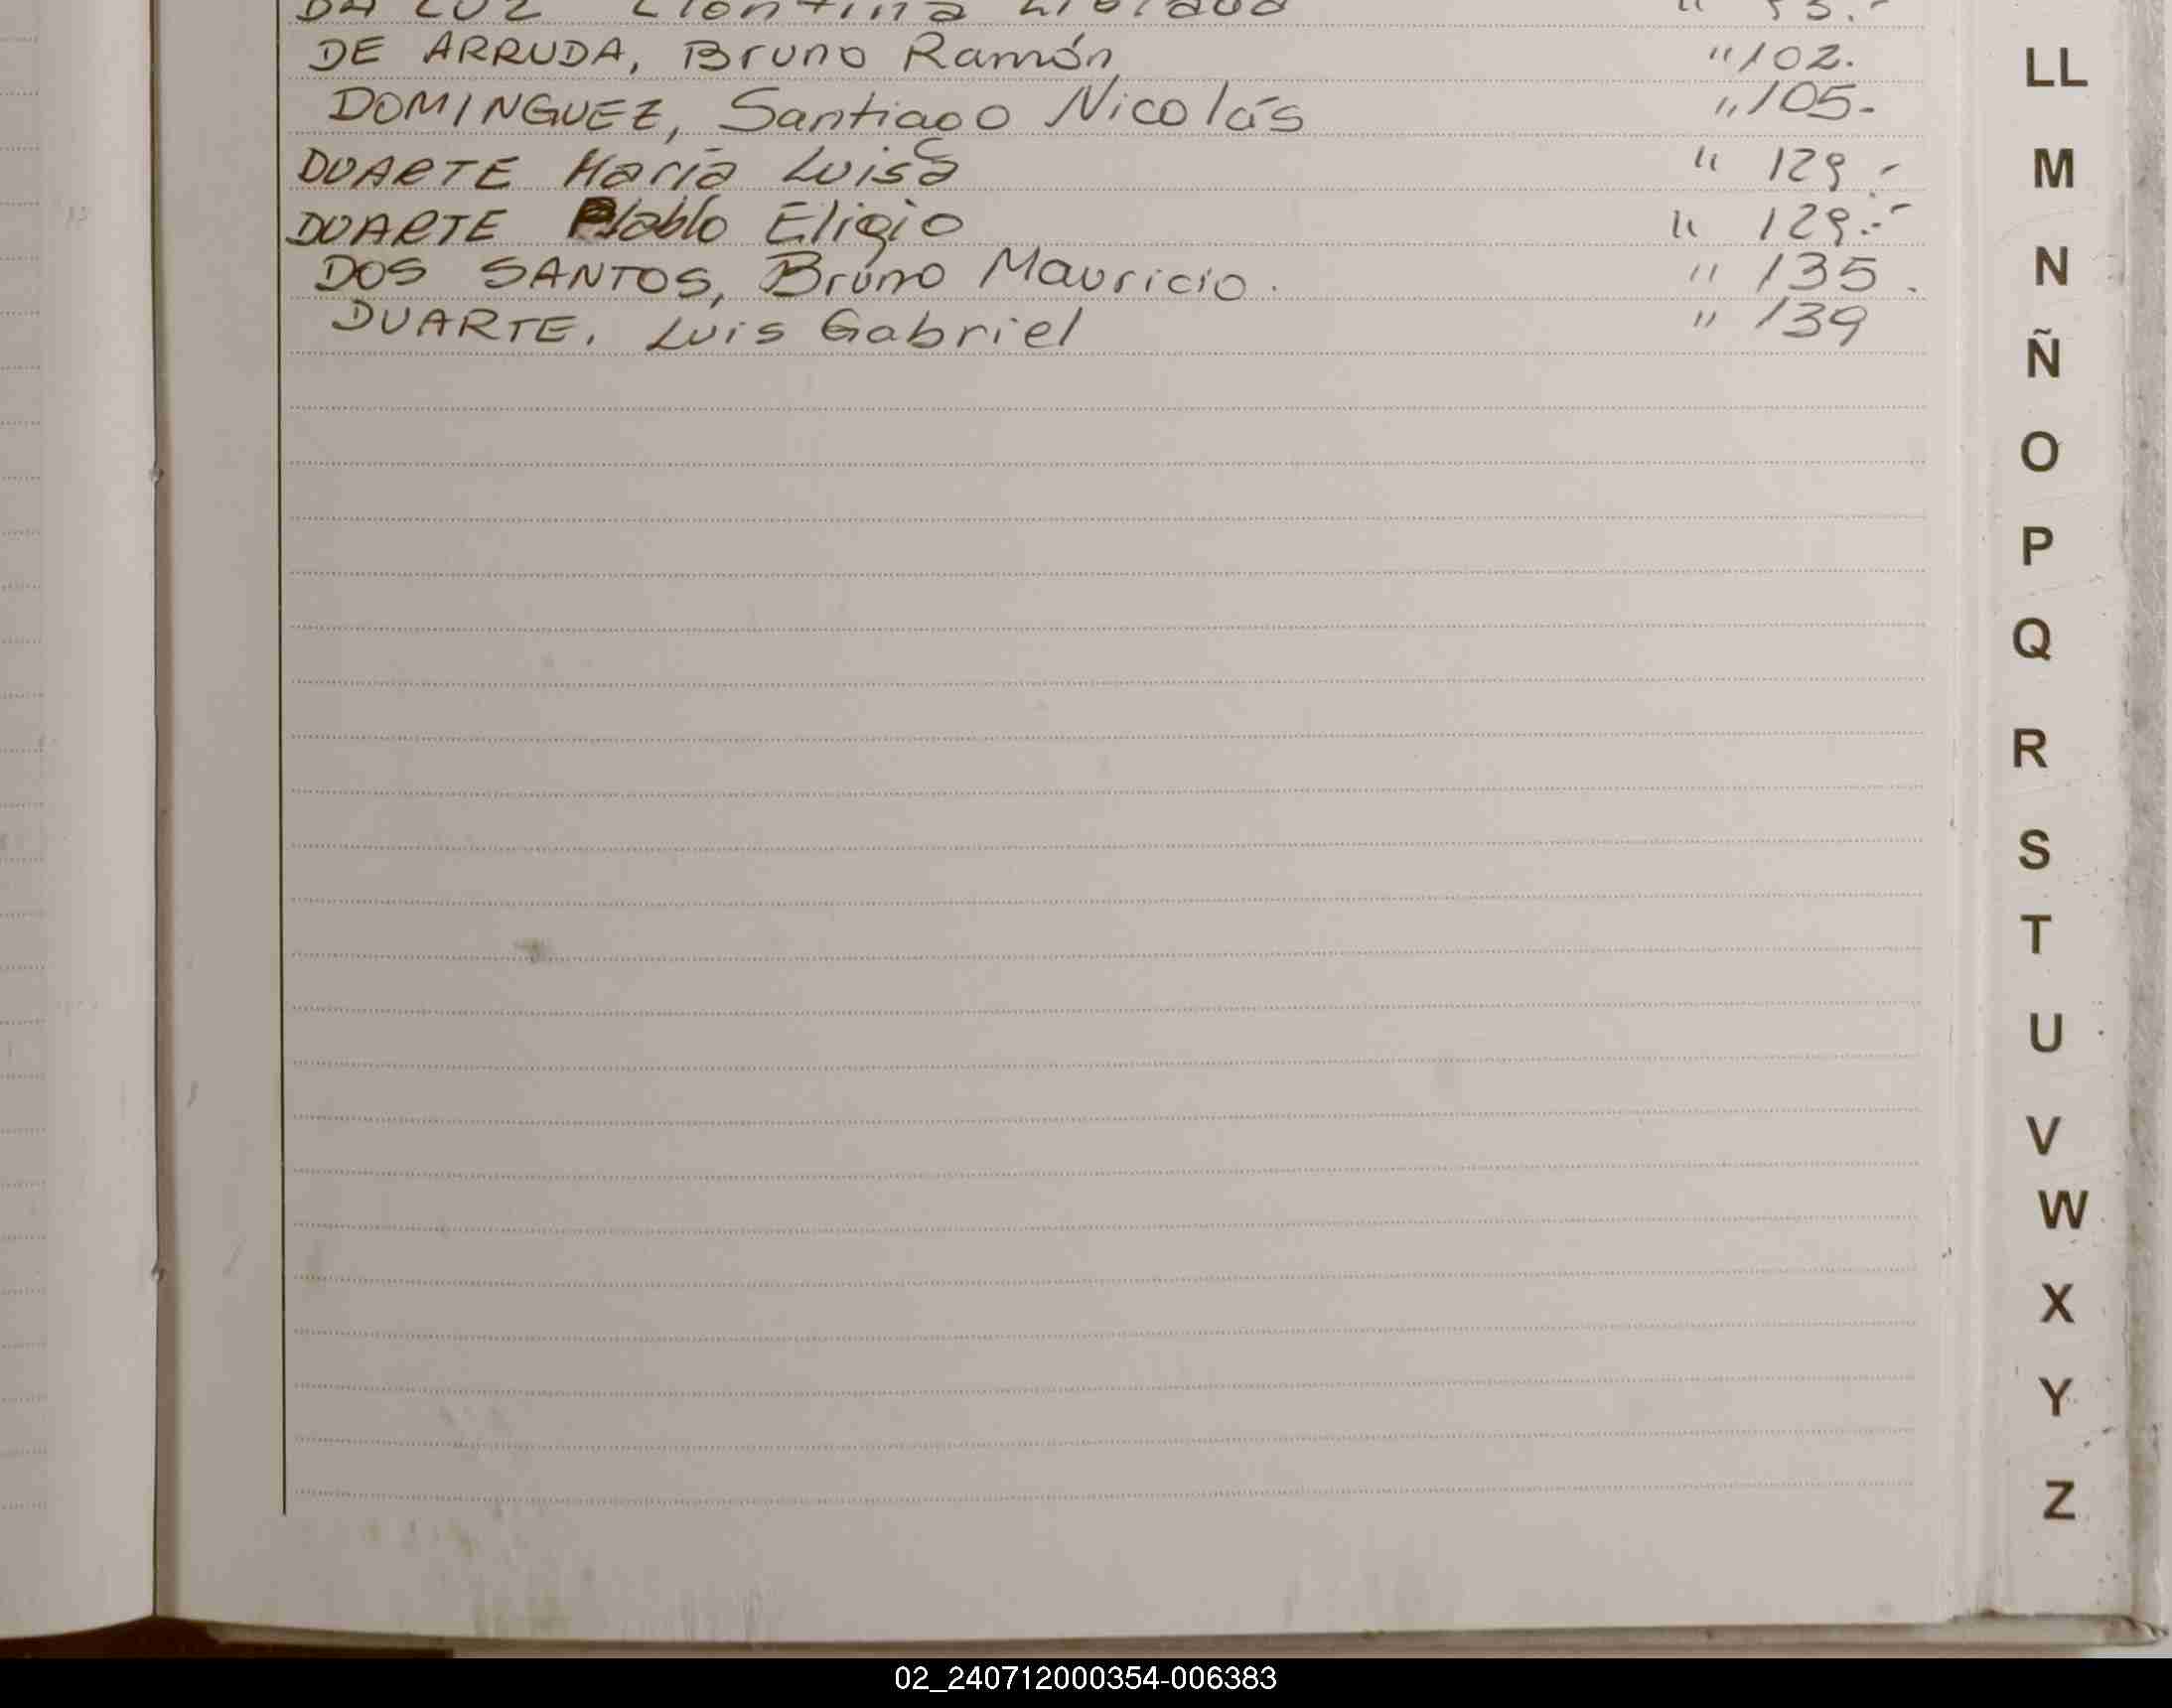 DA LUZ
DE ARRUDA, Bruno Ramón "102.
DOMINGUEZ, Santiago Nicolás "105-
DUARTE María Luisa " 129.-
DUARTE Pablo Eligio " 129.-
DOS SANTOS, Bruno Mauricio. " 135.
DUARTE. Luis Gabriel " 139
LL
M
N
Ñ
O
P
Q
R
S
T
U
V
W
X
Y
Z
02_240712000354-006383